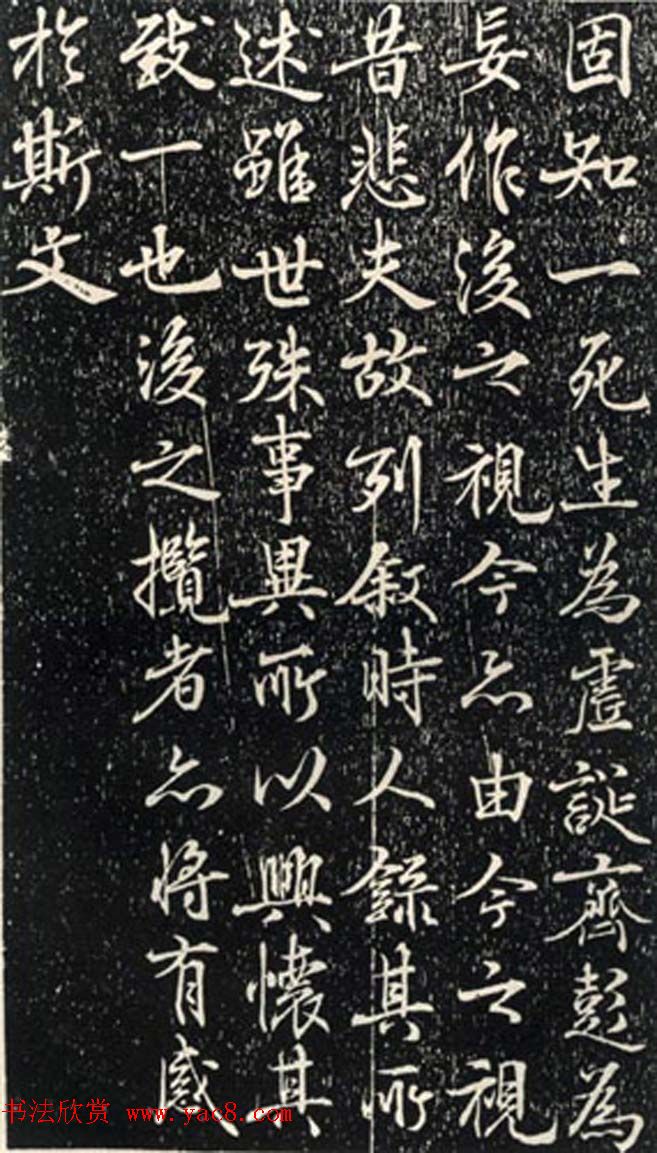 固知一死生為虛誕齊彭為
妄作後之視今亦由今之視
昔悲夫故列叙時人錄其所
述雖世殊事異所以興懷其
致一也後之攬者亦將有感
於斯文
书法欣赏 www.yac8.com